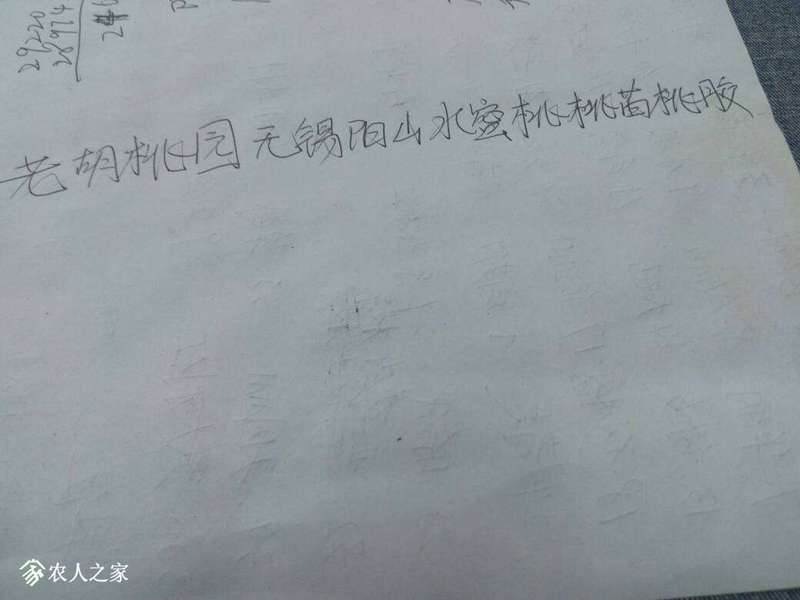 29220
28974
老胡桃园无锡阳山水蜜桃桃苗桃胶
农人之家